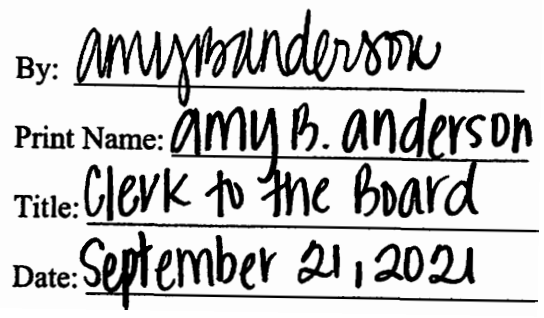 By: amyBanderson
Print Name: amy B. anderson
Title: Clerk to the Board
Date: September 21, 2021